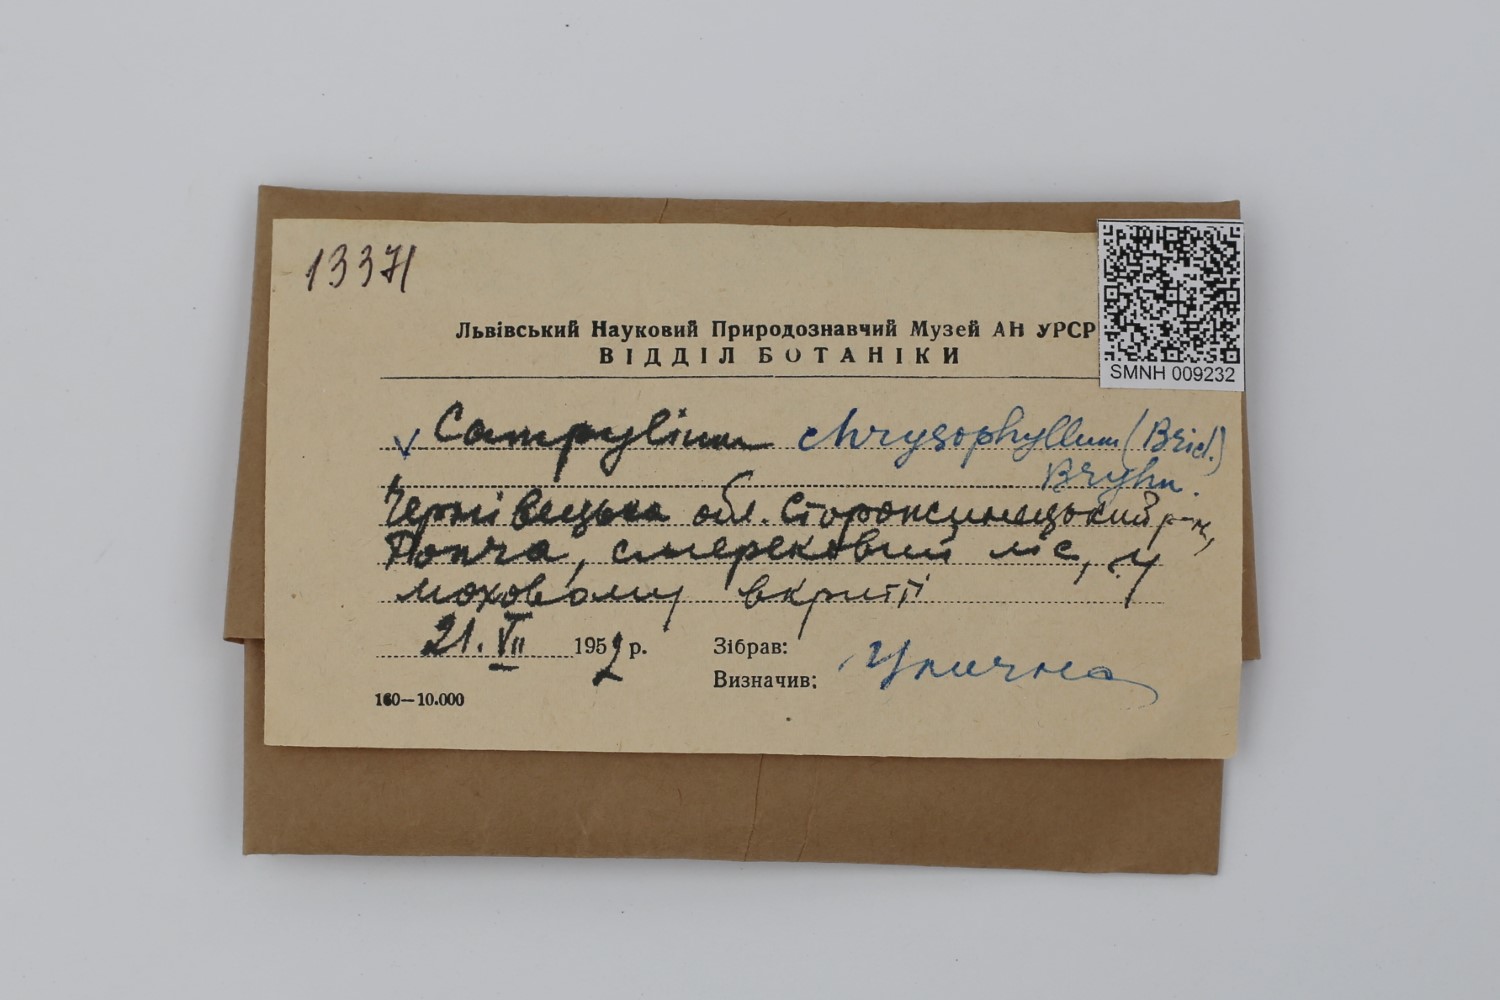 13371
Львівський Науковий Природознавчий Музей АН УРСР
ВІДДІЛ БОТАНІКИ
SMNH 009232
Campylium chrysophyllum (Brid.)
Bryhn.
Чернівецька обл. Сторожинецький р-н,
Ропча, смерековий ліс, у
моховому вкритті
21. VII 1952 р. Зібрав:
Визначив: Улична
160—10.000